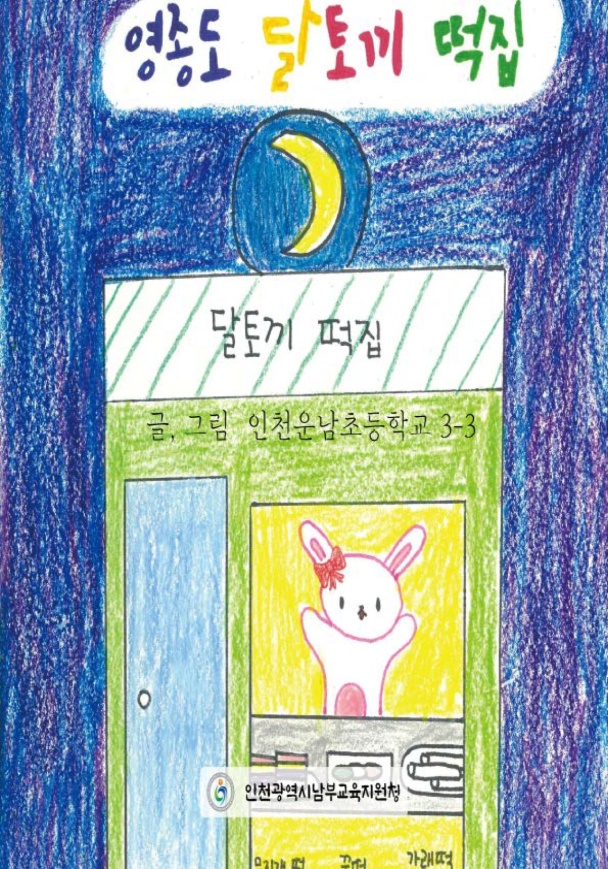 영종도 달토끼 떡집
달토끼 떡집
글, 그림 인천운남초등학교 3-3
인천광역시남부교육지원청
무지개 떡 꿀떡 가래떡